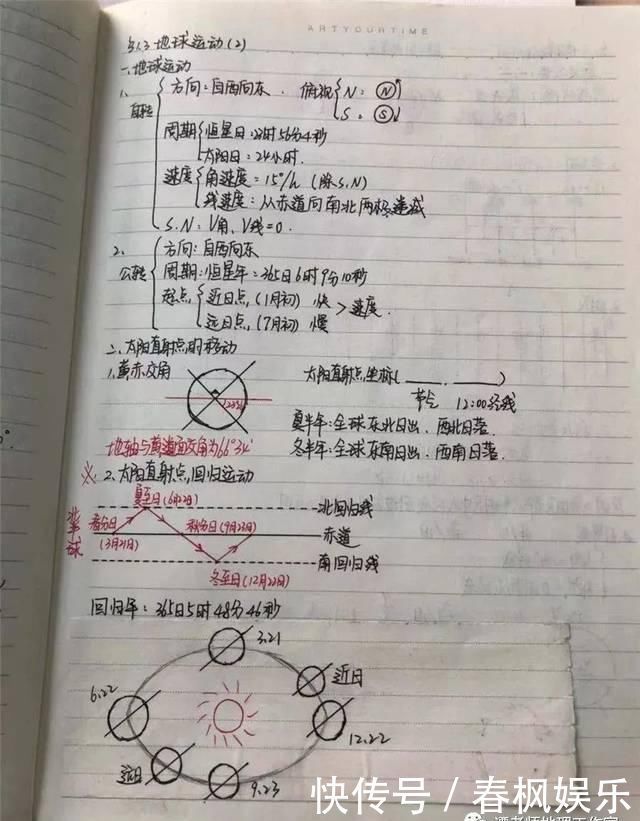 ARTYOURTIME
§1.3 地球运动(2)
一、地球运动
1. 自转
方向:自西向东. 俯视 N: Ⓝ
S: Ⓢ
周期 恒星日:23时56分4秒
太阳日:24小时.
速度 角速度=15°/h (除S.N)
线速度:从赤道向南北两极递减
S.N: V角、V线=0.
2. 公转
方向:自西向东
周期:恒星年=365日6时9分10秒
起点 近日点,(1月初) 快 > 速度.
远日点,(7月初) 慢
二、太阳直射点的移动
1.黄赤交角
太阳直射点坐标( , )
节气 12:00经线
23°26′
夏半年:全球东北日出、西北日落.
冬半年:全球东南日出、西南日落.
地轴与黄道面交角为66°34′
※ 2.太阳直射点回归运动
夏至日(6月22日)
北回归线
北半球
春分日
(3月21日)
秋分日(9月23日)
赤道
南回归线
冬至日(12月22日)
回归年:365日5时48分46秒
3.21
近日
6.22
12.22
远日
9.23
快传号 / 春枫娱乐
谭老师地理工作室